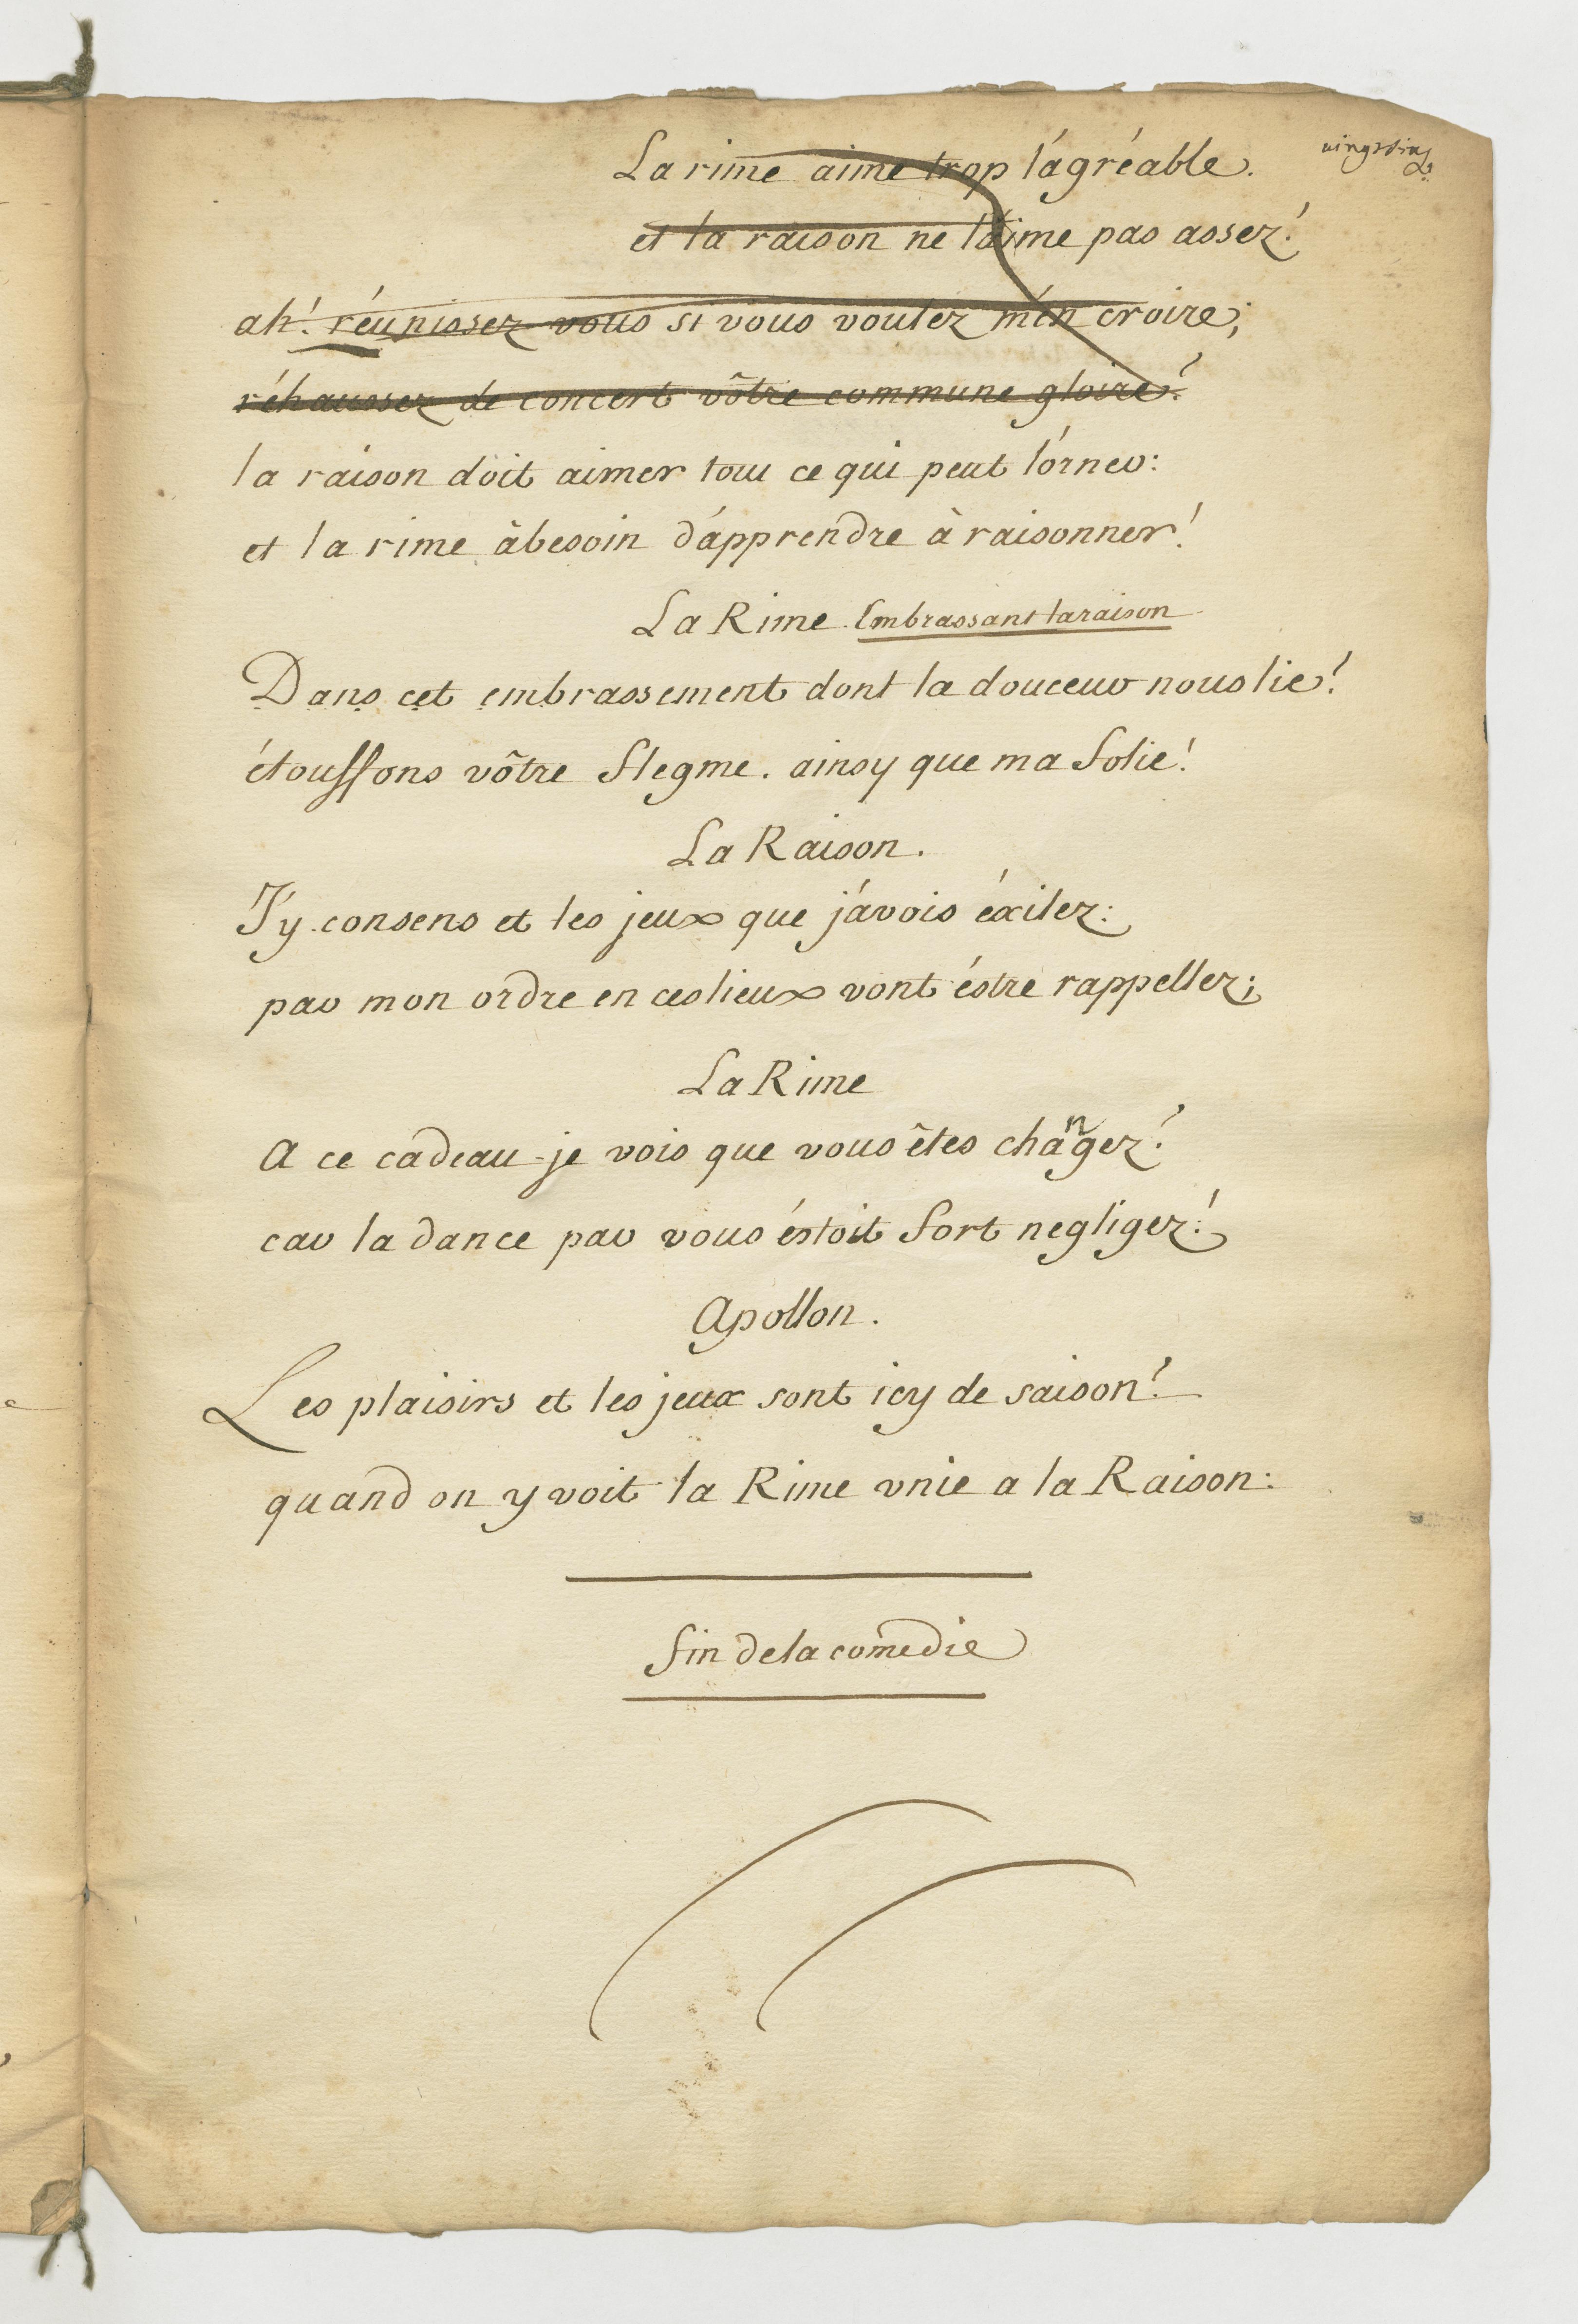 vingtsinq
La rime aime trop l'agréable.
et la raison ne l'aime pas assez!
ah! réunissez vous si vous voulez m'én croire;
réhaussez de concert vôtre commune gloire!
la raison doit aimer tout ce qui peut l'orner:
et la rime à besoin d'apprendre à raisonner!
La Rime Embrassant la raison
Dans cet embrassement dont la douceur nous lie!
étouffons vôtre flegme. ainsy que ma folie!
La Raison.
J'y consens et les jeux que j'avois éxilez:
par mon ordre en ces lieux vont éstre rappellez;
La Rime
A ce cadeau je vois que vous êtes changez!
car la dance par vous éstoit fort negligez!
Apollon.
Les plaisirs et les jeux sont icy de saison!
quand on y voit la Rime vnie a la Raison:
fin de la comedie